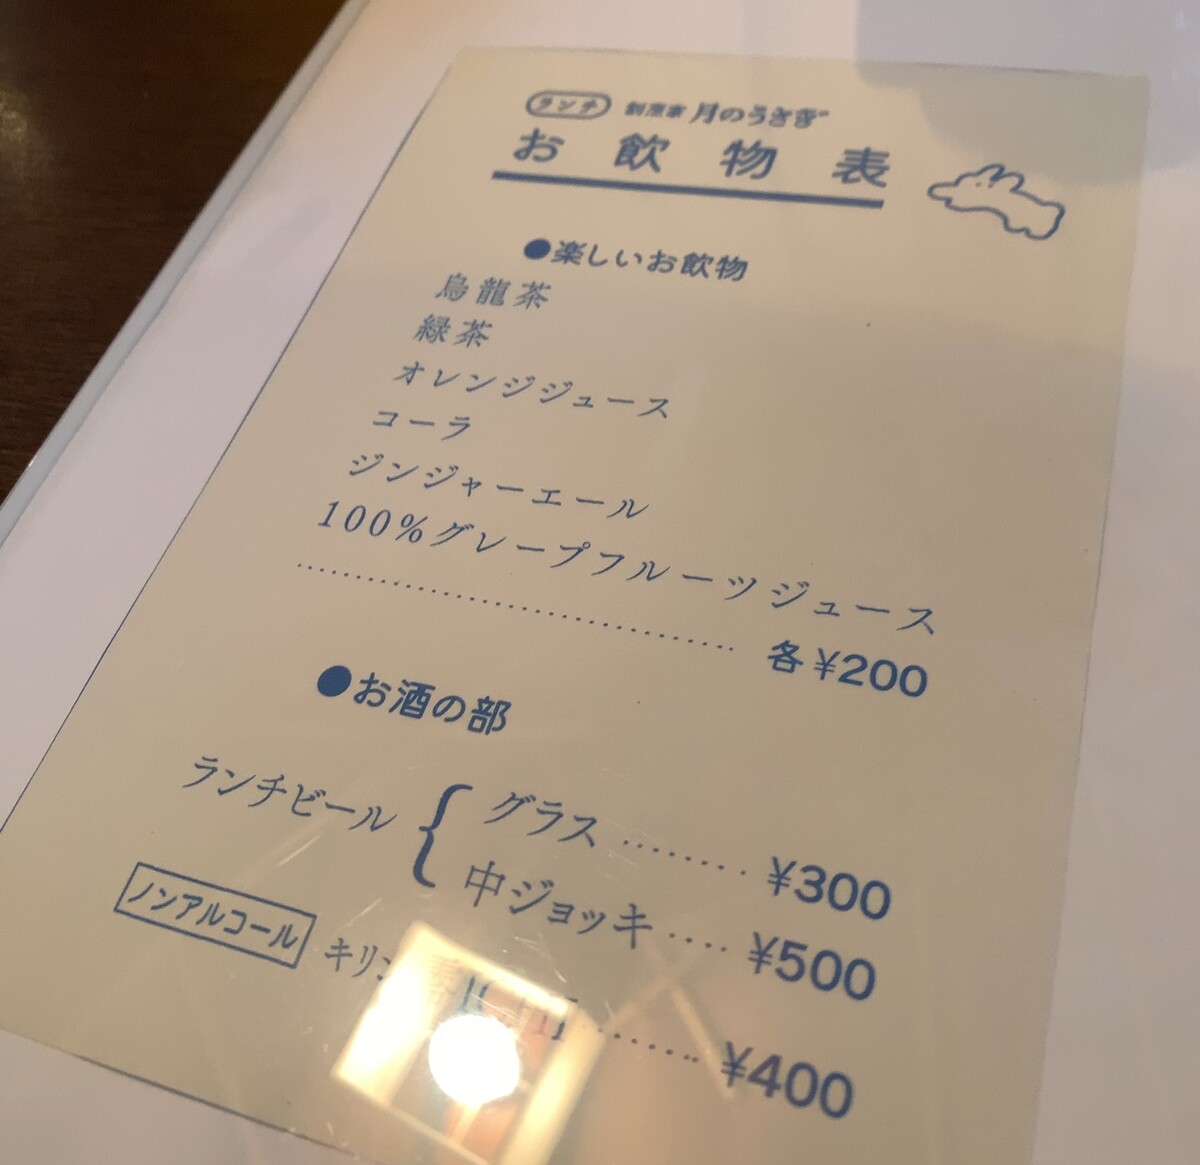 ランチ 割烹家 月のうさぎ
お飲物表
●楽しいお飲物
烏龍茶
緑茶
オレンジジュース
コーラ
ジンジャーエール
100%グレープフルーツジュース
各¥200
●お酒の部
ランチビール { グラス ........ ¥300
中ジョッキ .... ¥500
ノンアルコール キリン ....... ¥400